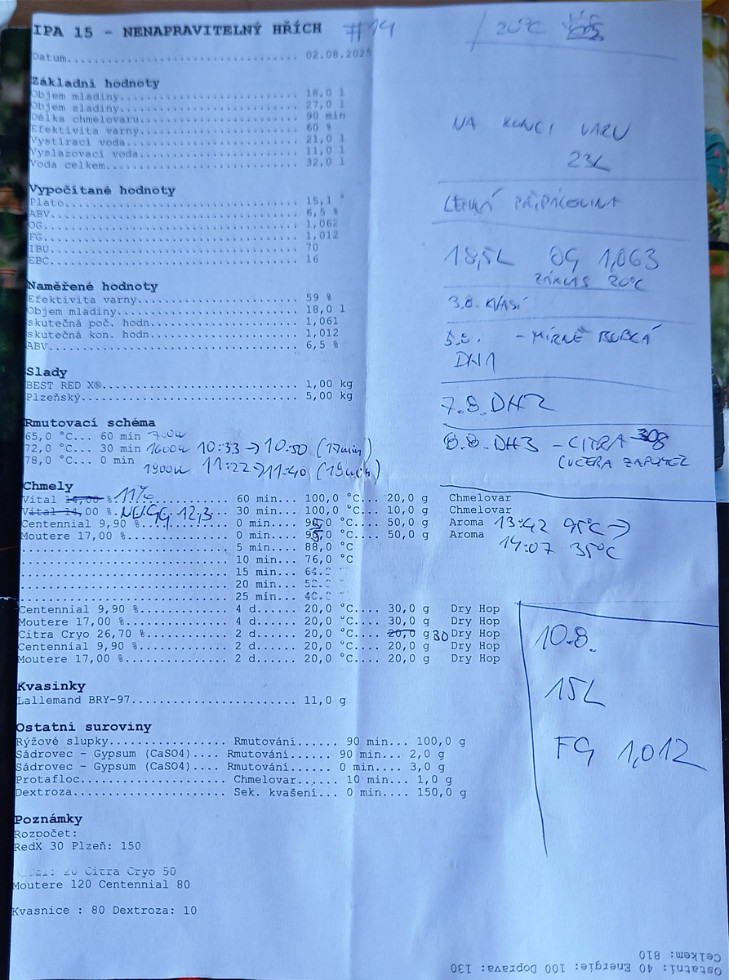 IPA 15 - NENAPRAVITELNÝ HŘÍCH #14
20°C
Datum................................ 02.08.2025
Základní hodnoty
Objem mladiny........................ 18,0 l
Objem sladiny........................ 27,0 l
Délka chmelovaru..................... 90 min
Efektivita varny..................... 60 %
Vystírací voda....................... 21,0 l
Vyslazovací voda..................... 11,0 l
Voda celkem.......................... 32,0 l
NA KONCI VARU
23L
Vypočítané hodnoty
Plato................................ 15,1 °
ABV.................................. 6,5 %
OG................................... 1,062
FG................................... 1,012
IBU.................................. 70
EBC.................................. 16
LEHKÁ PŘIPÁLENINA
18,5L OG 1,063
ZÁKVAS 20°C
Naměřené hodnoty
Efektivita varny..................... 59 %
Objem mladiny........................ 18,0 l
skutečná poč. hodn................... 1,061
skutečná kon. hodn................... 1,012
ABV.................................. 6,5 %
3.8. KVASÍ
5.8. - MÍRNĚ BUBLÁ
DH1
Slady
BEST RED X®.......................... 1,00 kg
Plzeňský............................. 5,00 kg
7.8. DH2
Rmutovací schéma
65,0 °C... 60 min
72,0 °C... 30 min 1600W 10:33 → 10:50 (17min)
78,0 °C... 0 min 1900W 11:22 → 11:40 (18min)
8.8. DH3 - CITRA 30g
(VČERA ZAPOMEL
Chmely
Vital 14,00 % 11% .......... 60 min... 100,0 °C... 20,0 g Chmelovar
Vital 14,00 % NUGG. 12,3 30 min... 100,0 °C... 10,0 g Chmelovar
Centennial 9,90 %............ 0 min... 95,0 °C.... 50,0 g Aroma 13:42 95°C →
Moutere 17,00 %.............. 0 min... 95,0 °C.... 50,0 g Aroma 14:07 35°C
............................. 5 min... 88,0 °C
............................. 10 min... 76,0 °C
............................. 15 min... 64.
............................. 20 min...
............................. 25 min...
Centennial 9,90 %............ 4 d...... 20,0 °C.... 30,0 g Dry Hop
Moutere 17,00 %.............. 4 d...... 20,0 °C.... 30,0 g Dry Hop
Citra Cryo 26,70 %........... 2 d...... 20,0 °C.... 20,0 g 30 Dry Hop
Centennial 9,90 %............ 2 d...... 20,0 °C.... 20,0 g Dry Hop
Moutere 17,00 %.............. 2 d...... 20,0 °C.... 20,0 g Dry Hop
10.8.
15L
FG 1,012
Kvasinky
Lallemand BRY-97..................... 11,0 g
Ostatní suroviny
Rýžové slupky................ Rmutování...... 90 min... 100,0 g
Sádrovec - Gypsum (CaSO4).... Rmutování...... 90 min... 2,0 g
Sádrovec - Gypsum (CaSO4).... Rmutování...... 0 min.... 3,0 g
Protafloc.................... Chmelovar...... 10 min... 1,0 g
Dextroza..................... Sek. kvašení... 0 min.... 150,0 g
Poznámky
Rozpočet:
RedX 30 Plzeň: 150
20 Citra Cryo 50
Moutere 120 Centennial 80
Kvasnice : 80 Dextroza: 10
Ostatní: 40 Energie: 100 Doprava: 130
Celkem: 810